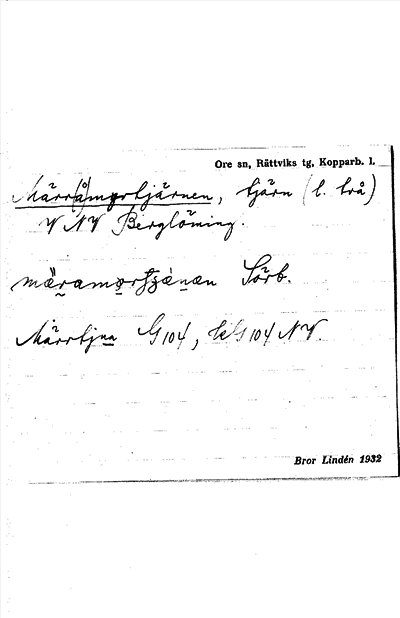 Ore sn, Rättviks tg, Kopparb. l.
Märr(å)myrtjärnen, tjärn (l. två)
V NV Berglöming.
Sörb.
Märrtjna G104, kG104 NV.
Bror Lindén 1932